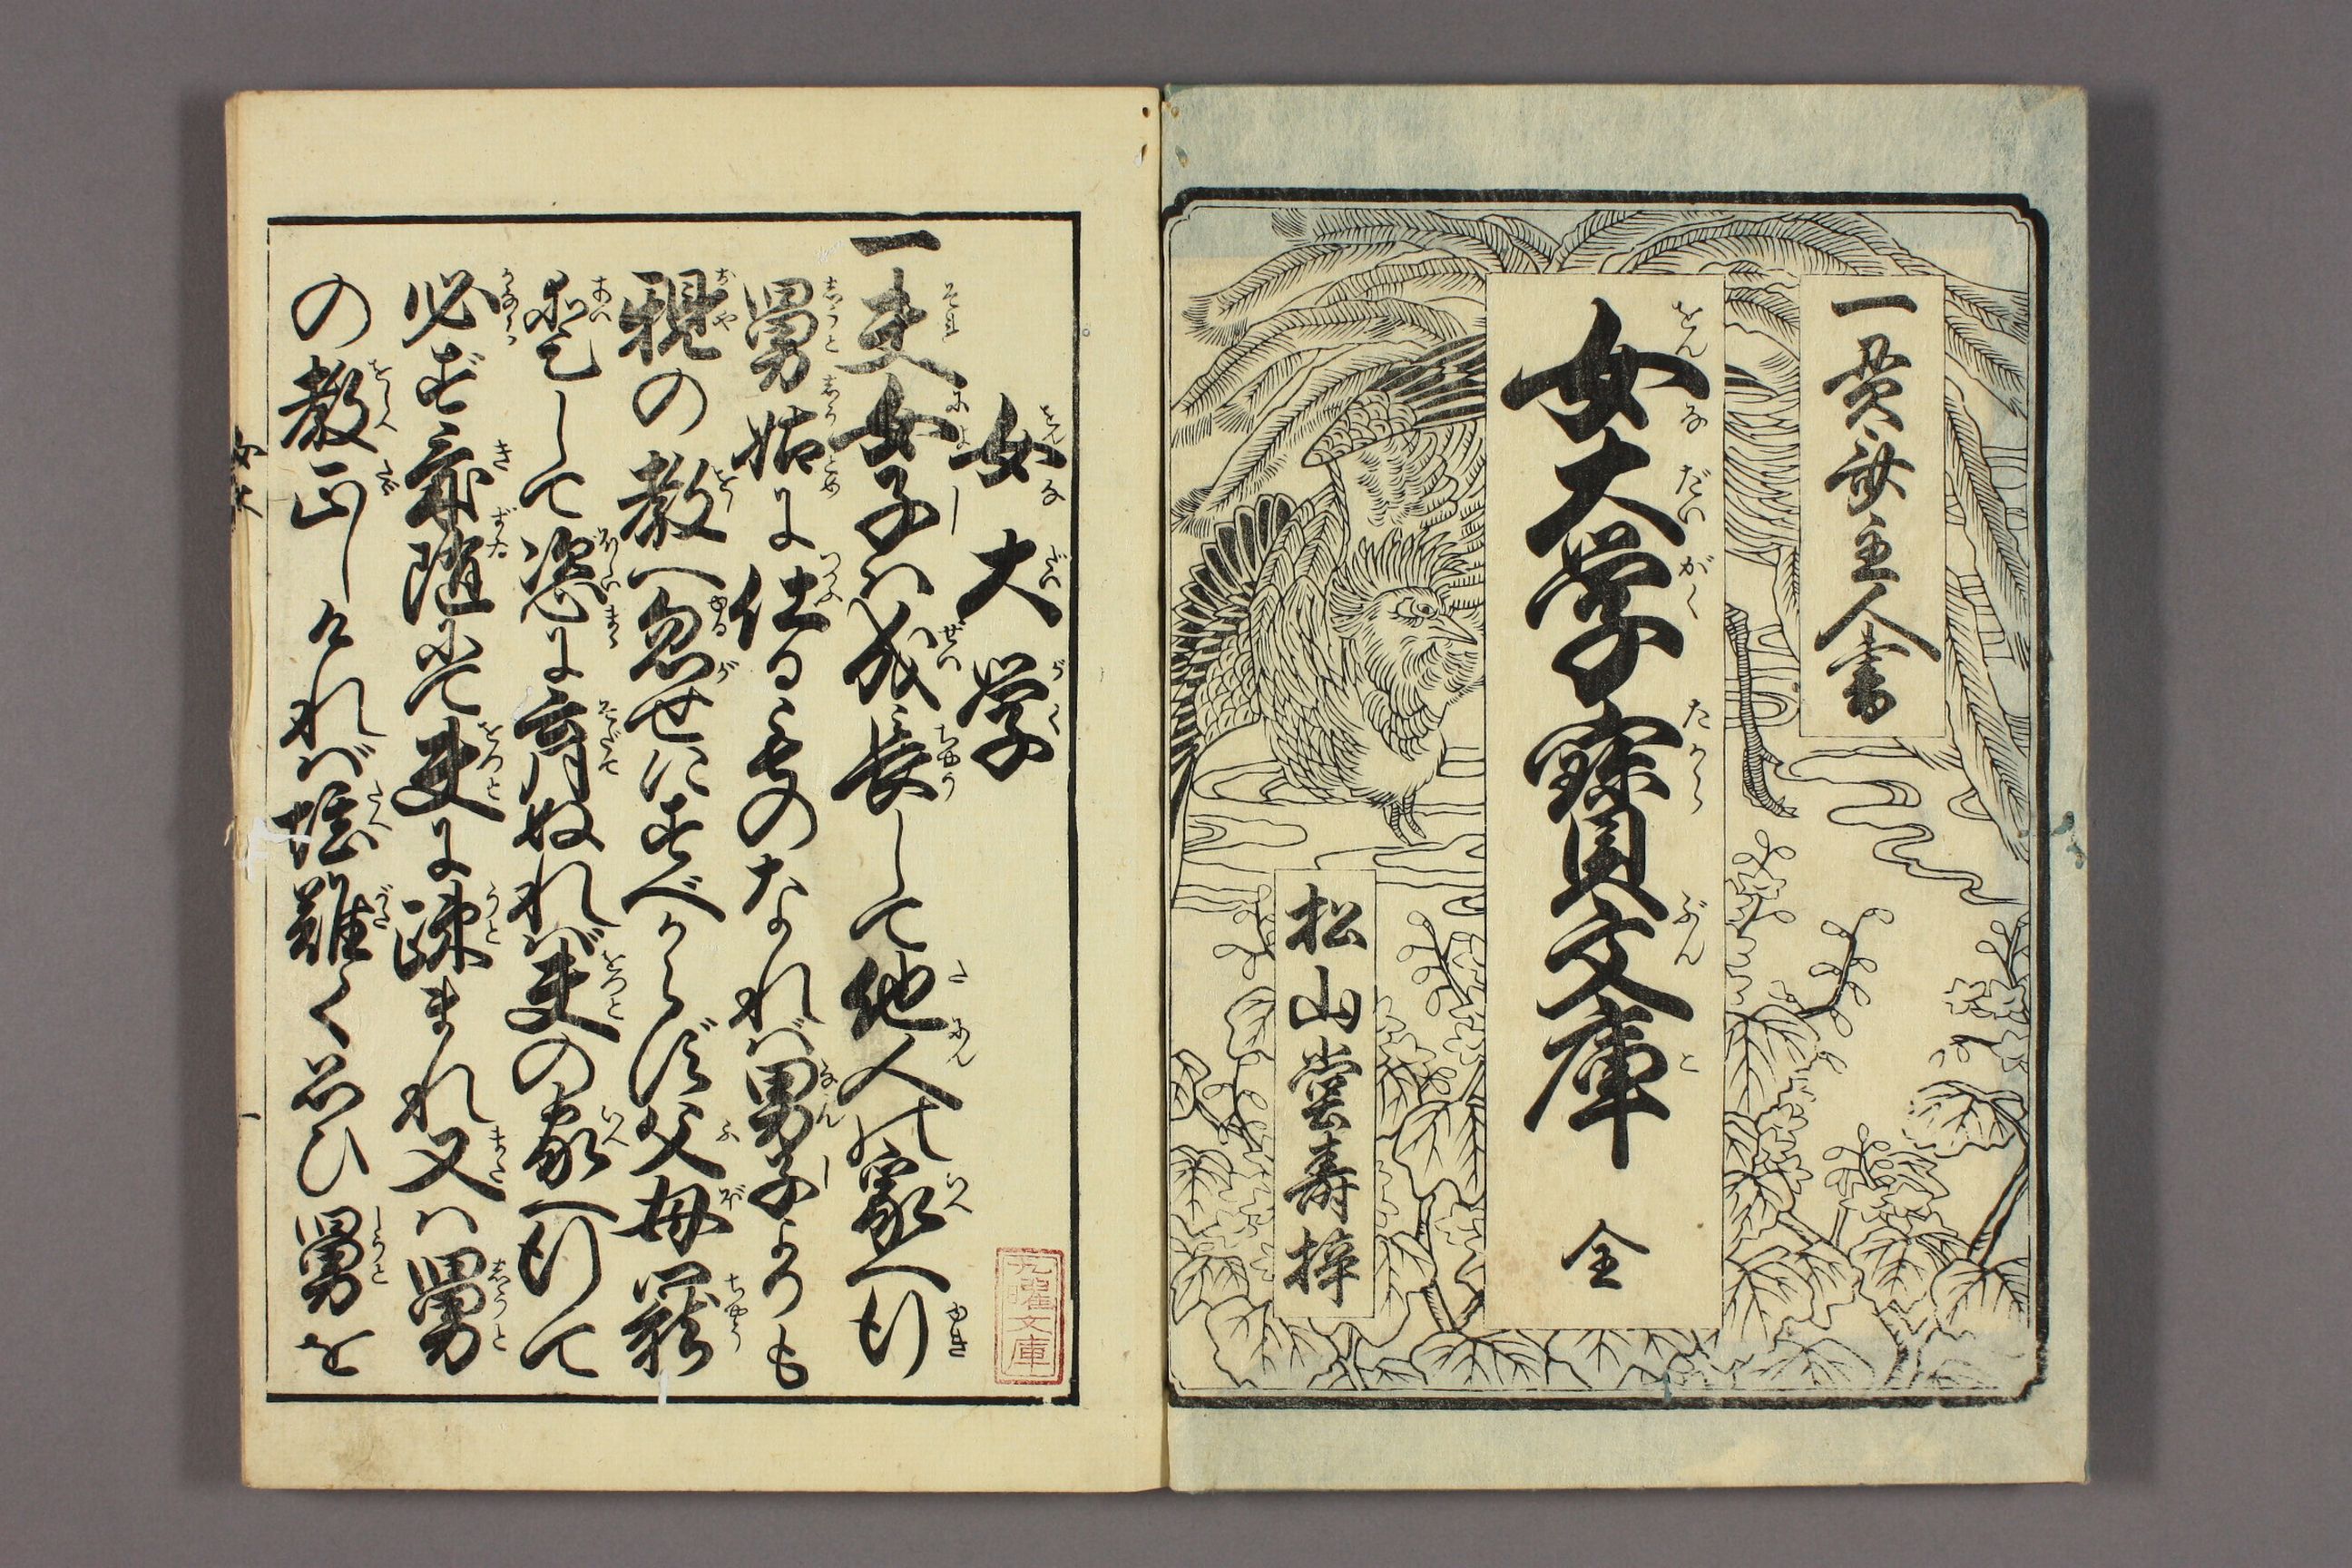 一貫齋主人書
女大学寶文庫 全
松山堂壽梓
女大学
一夫女子ハ成長して他人の家へ行
舅姑に仕るものなれバ男子よりも
親の教へ忽せにすべからず父母寵
愛して恣に育ぬれバ夫の家へ行て
必ず氣随にて夫に疎まれ又ハ舅
の教正しけれバ堪難く思ひ舅を
女大
一
九曜文庫